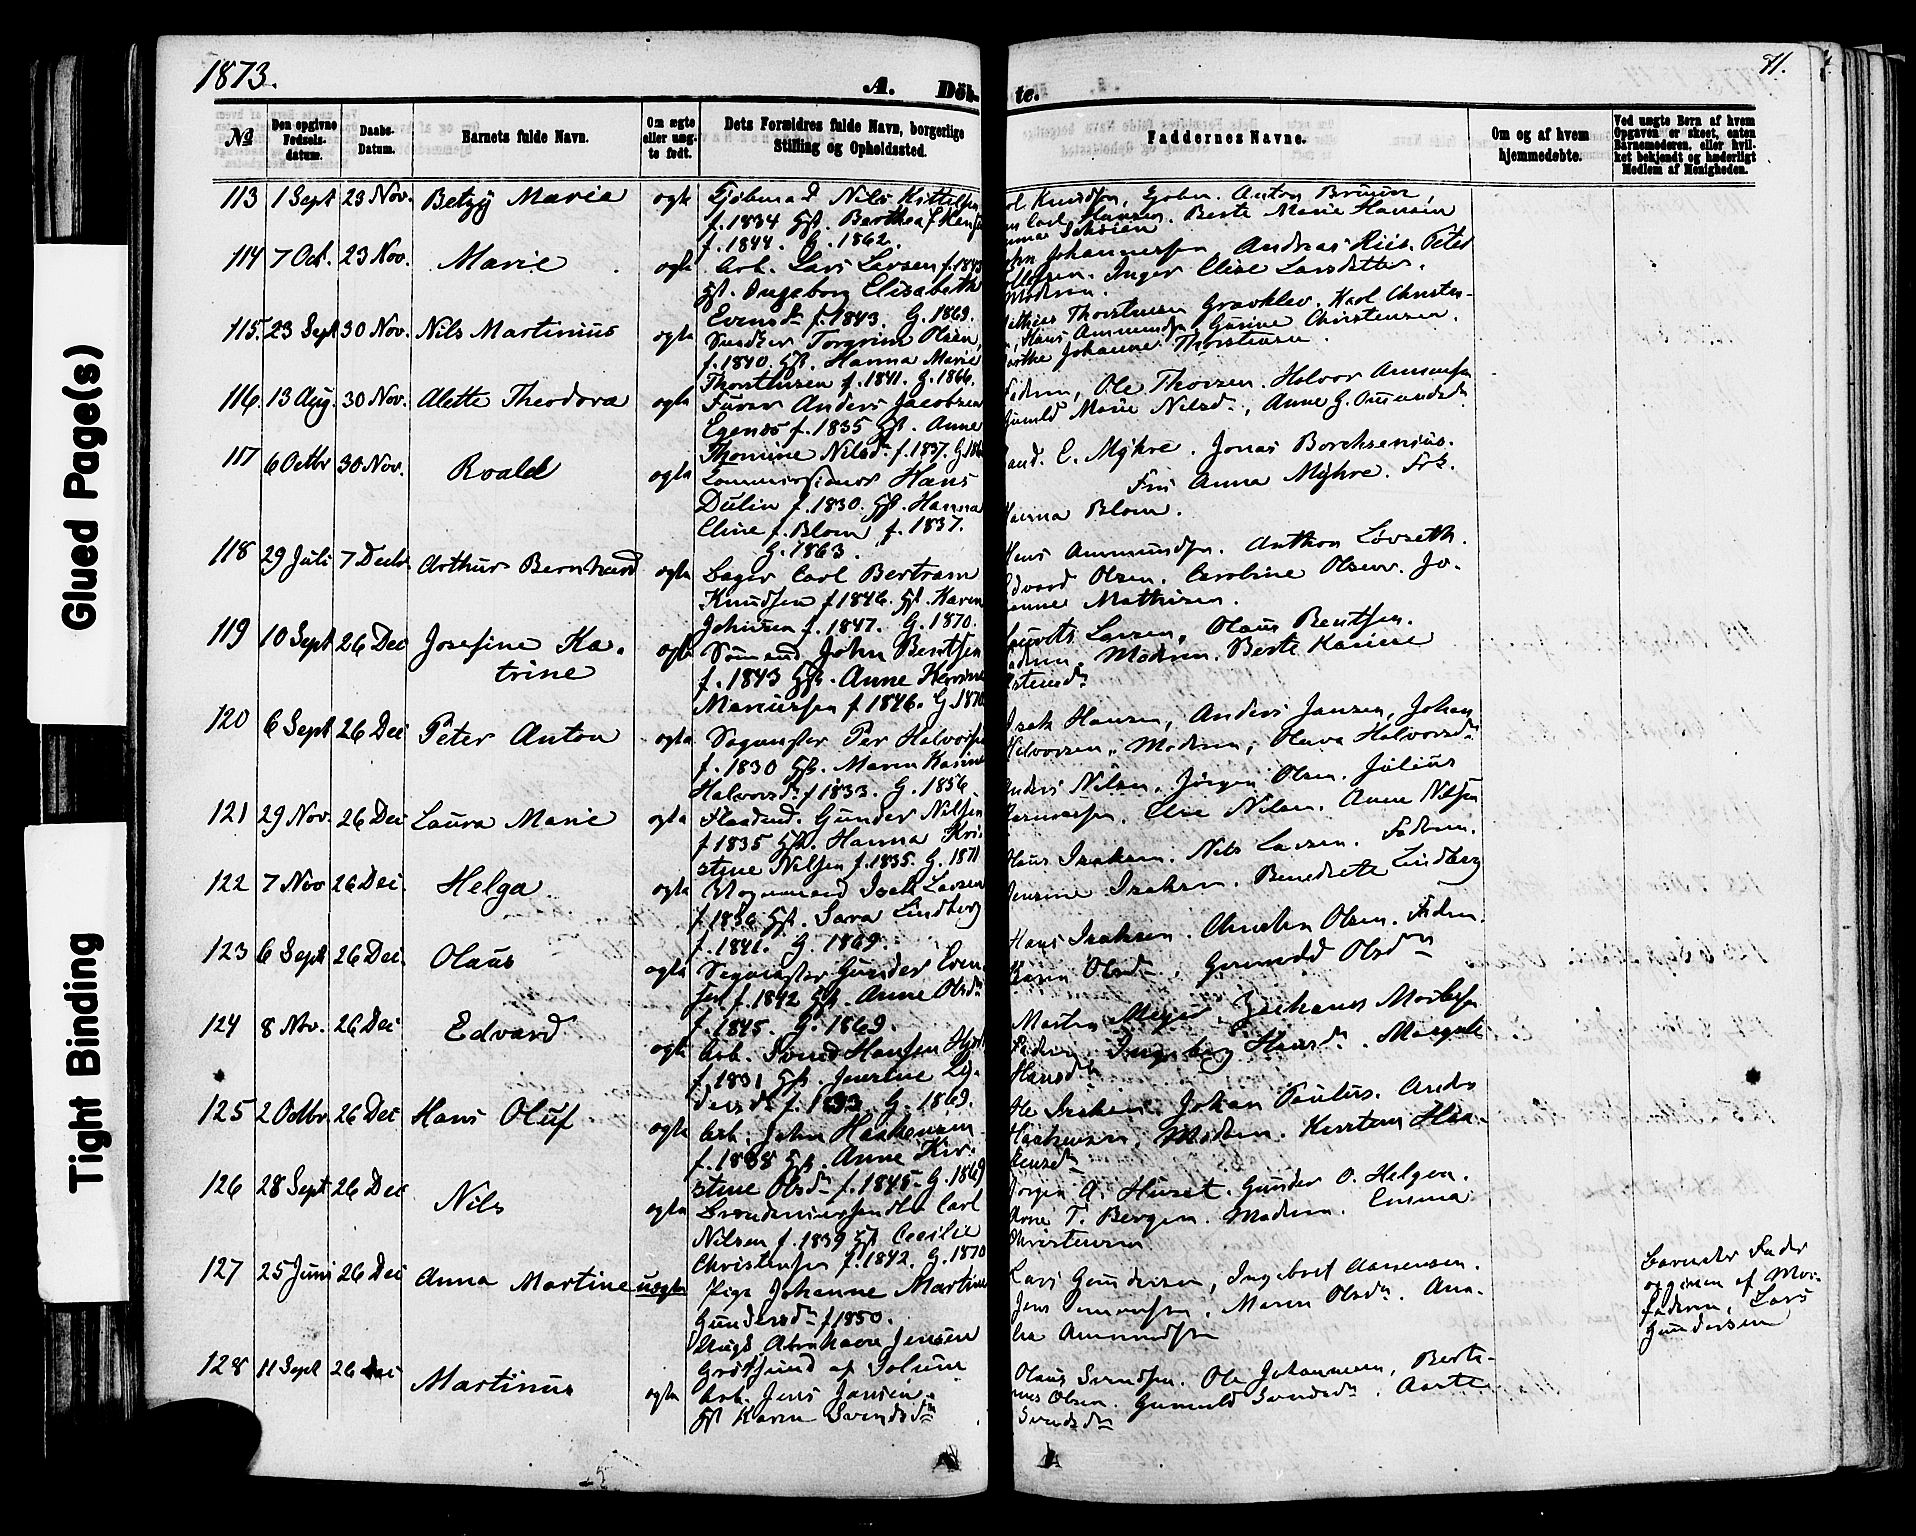 1873.
A. Döb-
te.
81.
Glued Page(s)
Tight Binding
№
Den opgivne Fødsels-datum.
Daabs-Datum.
Barnets fulde Navn.
Om ægte eller uægte født.
Dets Forældres fulde Navn, borgerlige Stilling og Opholdssted.
Faddernes Navne.
Om og af hvem hjemmedøbte.
Ved uægte Børn af hvem Opgaven er skeet, enten Barnemoderen, eller hvilket bekjendt og hæderligt Medlem af Menigheden.
113 1 Sept 23 Nov. Betzy Marie ægte
Nils Kittelsen
f. 1834
f. 1844. G. 1862.
Knudsen, Anton Bruun,
Carl Hansen. Berte Marie Hansen
114 7 Oct. 23 Nov. Marie ægte
Arb. Lars Larsen f. 1843
Gf. Ingeborg Elisabeth
Evensdr f. 1843. G. 1869.
Johannessen, Andreas Riis. Peter
Inger Elise Larsdatter.
Modren.
115. 23 Sept 30 Nov. Nils Martinius ægte
Torgrim Olsen,
f. 1840. Gf. Hanna Marie
Thorstensen f. 1841. G. 1866.
Thorstensen Gravklev. Karl Christen-
Hans Ammundsen, Gurine Christensen.
Johanne Thorstensen.
116. 13 Aug. 30 Nov. Alette Theodora ægte
Anders Jacobsen
f. 1835 Gf. Anne
Thomine Nilsdr f. 1837.
Ole Thorsen. Halvor Ammunds
Gunild Marie Nilsdr, Anne G. Amundsdr
117 6 Octbr 30 Nov. Roald ægte
Commissionær Hans
Dulin f. 1830. Gf. Hanna
Eline f. Blom f. 1837.
G. 1863.
Cand. C. Myhre. Jonas Borchsenius.
Fru Anna Myhre. Frk.
Hanna Blom.
118 29 Juli 7 Decbr Arthur Bernhard ægte
Bager Carl Bertram
Knudsen f 1846. Gf. Karen
f. 1847. G. 1870.
Hans Ammundsen. Anthon Løvseth.
Edvard Olsen. Caroline Olsen. Jo-
hanne Mathisen.
119 10 Sept 26 Dec Josefine Ka-
trine ægte
Sømand John Bentsen
f. 1843 Gf. Anne
f. 1846. G. 1870
Laurits Larsen, Olaus Bentsen.
Modren. Berte Karine
120 6 Sept 26 Dec Peter Anton ægte
Sagmester Per Halvorsen
f. 1830 Gf. Maren Karine
Halvorsdr f 1833. G. 1856.
Isak Hansen, Anders Jansen, Johan
Halvorsen, Modren, Oleva Halvorsdr
121 29 Nov. 26 Dec Laura Marie ægte
Gunder Nilsen
f. 1835 Gf. Hanna Kri-
stine Nilsen f. 1835. G. 1871
Anders Nilsen, Jørgen Olsen. Julius
Else Nilsen. Anne Nilsen
122 7 Nov 26 Dec. Helga ægte
Vognmand Isak Larsen
f. 1836 Gf. Sara Lindberg
f. 1841. G. 1869.
Hans Isaksen. Nils Larsen. Fadren.
Jensine Isaksen. Benedicte Lindberg
123 6 Sept 26 Dec. Olaus ægte
Sagmester Gunder Even-
sen f. 1842 Gf. Anne Olsdr
f. 1845. G. 1869.
Hans Isaksen. Christen Olsen. Fadren.
Karen Olsdr. Gunnild Olsdr
124 8 Nov. 26 Dec Edvard ægte
Arb. Svend Hansen
f. 1831 Gf. Jensine
G. 1869.
Morten Meyer.
Fadren, Ingeborg Hansdr. Margit
Hansdr
125 2 Octbr. 26 Dec Hans Oluf ægte
Arb. John Haakensen
f. 1838 Gf. Anne Kir-
stine Olsdr f. 1845. G. 1869
Ole Isaksen. Johan Paulus. Anders
Haakensen, Modren. Kirsten Haa-
kensdr
126 28 Sept 26 Dec Nils ægte
Carl
Nilsen f. 1839 Gf Cecilie
Christensen f. 1842. G. 1870
Jørgen A. Huset. Gunder O. Helgen.
Arne T. Bergen. Modren. Emma
Christensen
127 25 Juni 26 Dec Anna Martine uægte
Pige Johanne Martine
Gundersdr f 1850.
Ungk. Abraham Jensen
Grötsund af Solum
Lars Gundersen, Ingebret Aanensen.
Jens Maren Olsdr. Ama-
lia Ammundsen
Barnets Fader
opgiven af Mor-
fadren, Lars
Gundersen
128 11 Sept 26 Dec Martinus ægte
Arb. Jens Jansen
Gf Karen Svendsdr
Olaus Svendsen. Ole Johannesen, Berte-
nus Olsen. Gunild Svendsdr. Aaste
Svendsdr